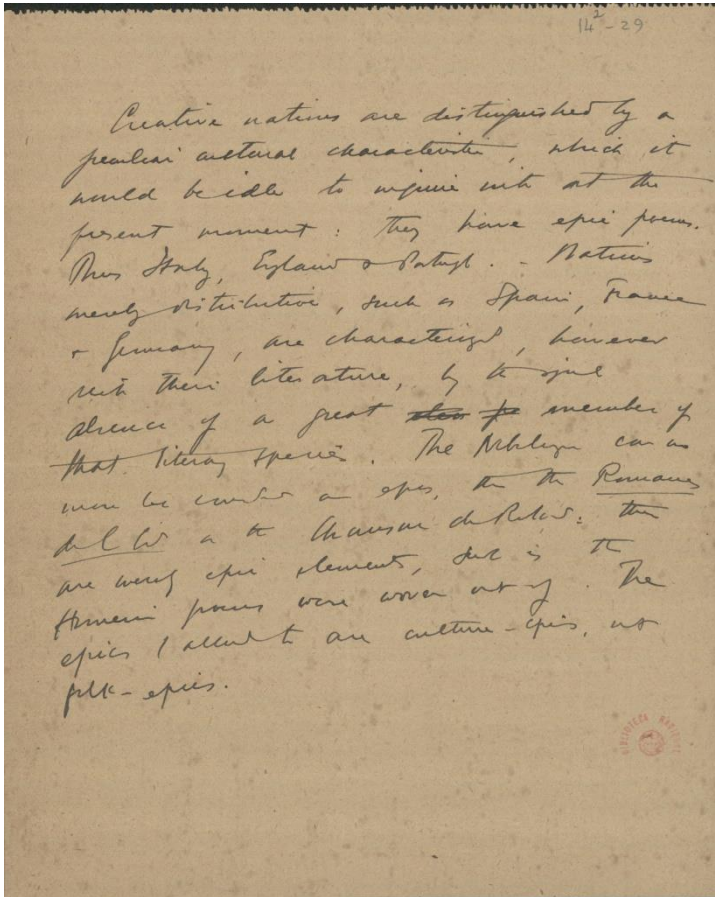 14²-29
Creative nations are distinguished by a
peculiar cultural characteristic, which it
would be idle to inquire into at the
present moment: they have epic poems.
Thus Italy, England & Portugal. - Nations
merely distributive, such as Spain, France
& Germany, are characterized, however
rich their literature, by the signal
absence of a great member of
that literary species. The Nibelungen can no
more be counted an epic, than the Romancero
del Cid or the Chanson de Roland: these
are merely epic elements, such as the
Homeric poems were woven out of. The
epics I allude to are culture-epics, not
folk-epics.
BIBLIOTECA NACIONAL